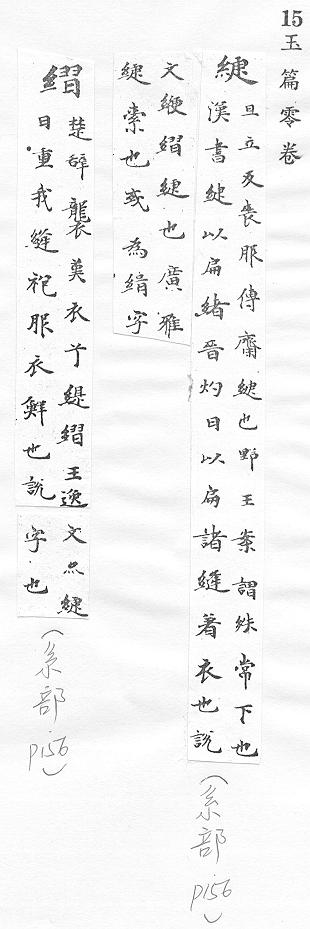 15玉篇零卷
緁
且立反喪服傳齋緁也野王案謂殊常下也
漢書緁以扁緒晉灼曰以扁諸縫著衣也說
文緶緝緁也廣雅
緁索也或為緝字
(糸部 P156)
緝
楚辞襲英衣兮緹緝王逸
曰重我縫祀服衣鮮也說
文亦緁
字也
(糸部 P156)